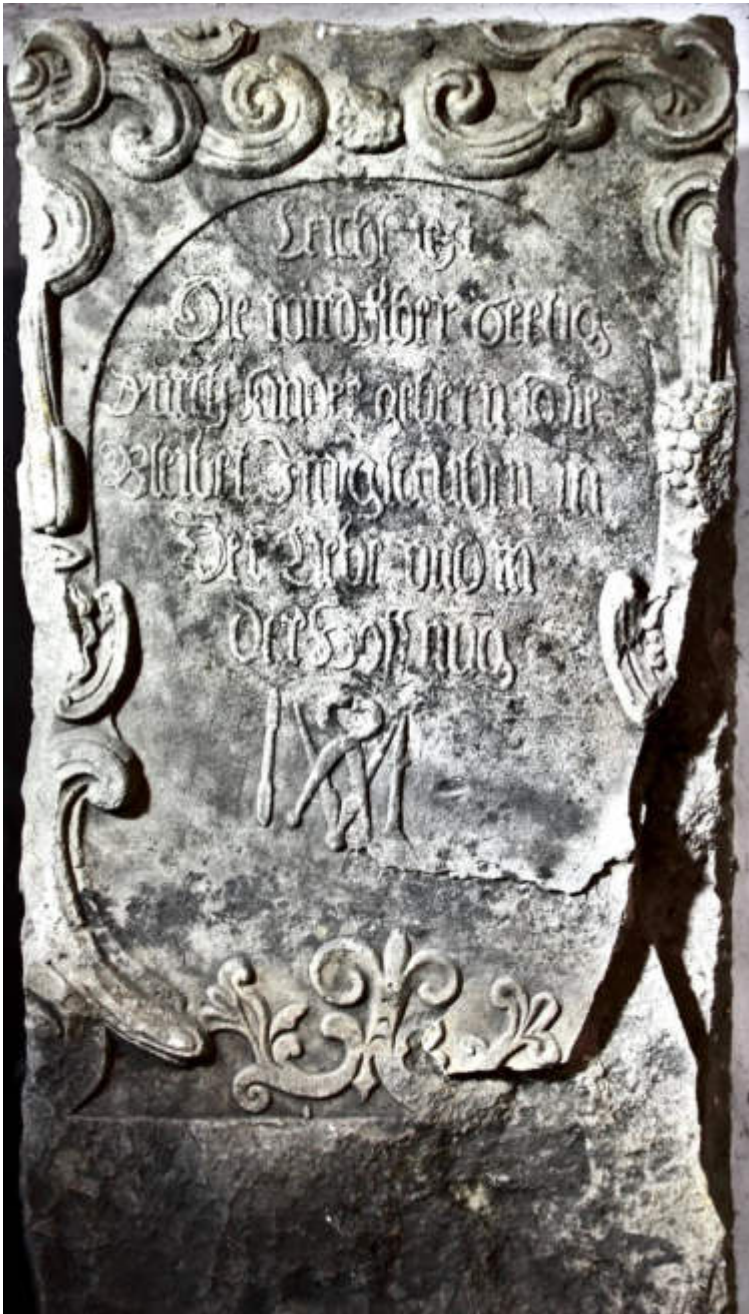 Leich text
Die wird Aber Seelig
Durch kinder gebern so sie
Bleibet Im glauben in
Der Liebe und in
der Hoffnung